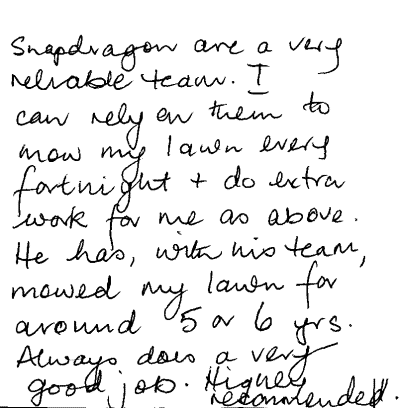 Snapdragon are a very
reliable team. I
can rely on them to
mow my lawn every
fortnight + do extra
work for me as above.
He has, with his team,
mowed my lawn for
around 5 or 6 yrs.
Always does a very
good job. Highly
recommended.